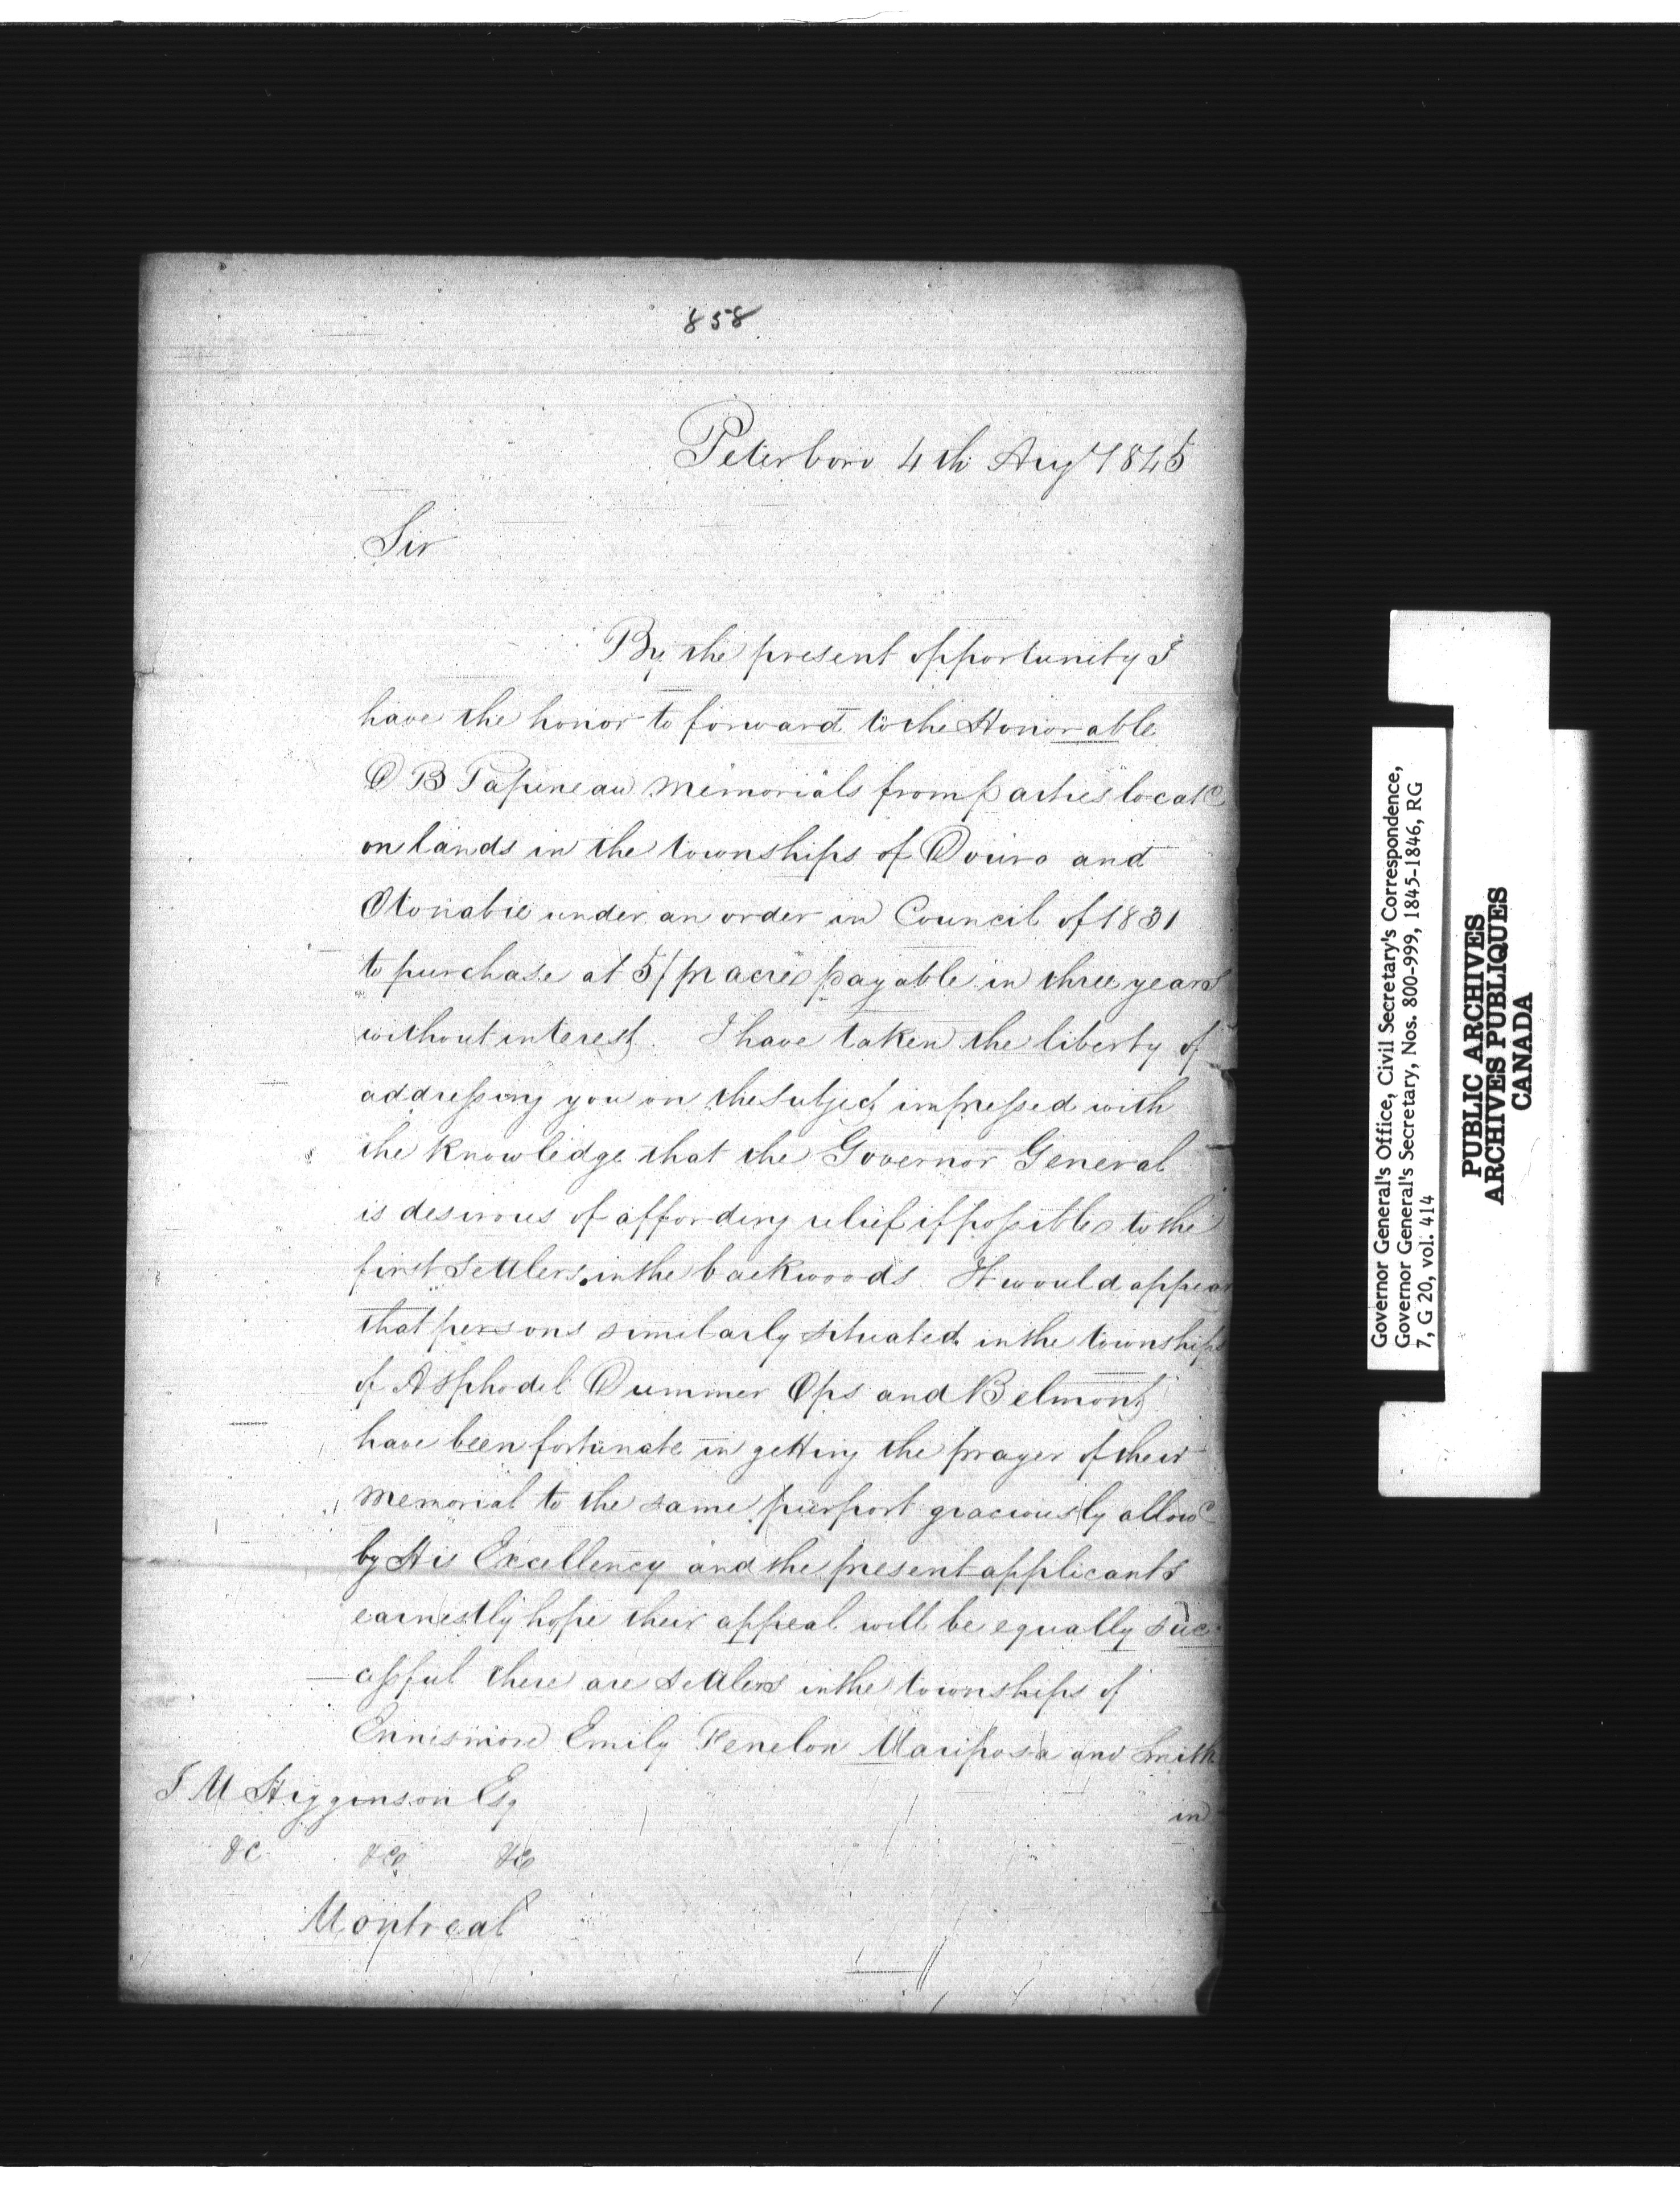 858
Peterboro 4th Aug 1845
Sir
By the present opportunity I
have the honor to forward to the Honorable
D B Papineau memorials from parties locate
on lands in the townships of Douro and
Otonabie under an order in Council of 1831
to purchase at 5/ pr acre payable in three years
without interest. I have taken the liberty of
addressing you on the subject impressed with
the knowledge that the Governor General
is desirous of affording relief if possible to the
first settlers in the backwoods It would appear
that persons similarly situated in the townships
of Asphodel Dummer Ops and Belmont
have been fortunate in getting the prayer of their
memorial to the same purport graciously allow
by His Excellency and the present applicants
earnestly hope their appeal will be equally suc-
-cessful there are settlers in the townships of
Ennismore Emily Fenelon Mariposa and Smith
in
J M Higginson Esq
&c &c &c
Montreal
Governor General's Office, Civil Secretary's Correspondence,
Governor General's Secretary, Nos. 800-999, 1845-1846, RG
7, G 20, vol. 414
PUBLIC ARCHIVES
ARCHIVES PUBLIQUES
CANADA